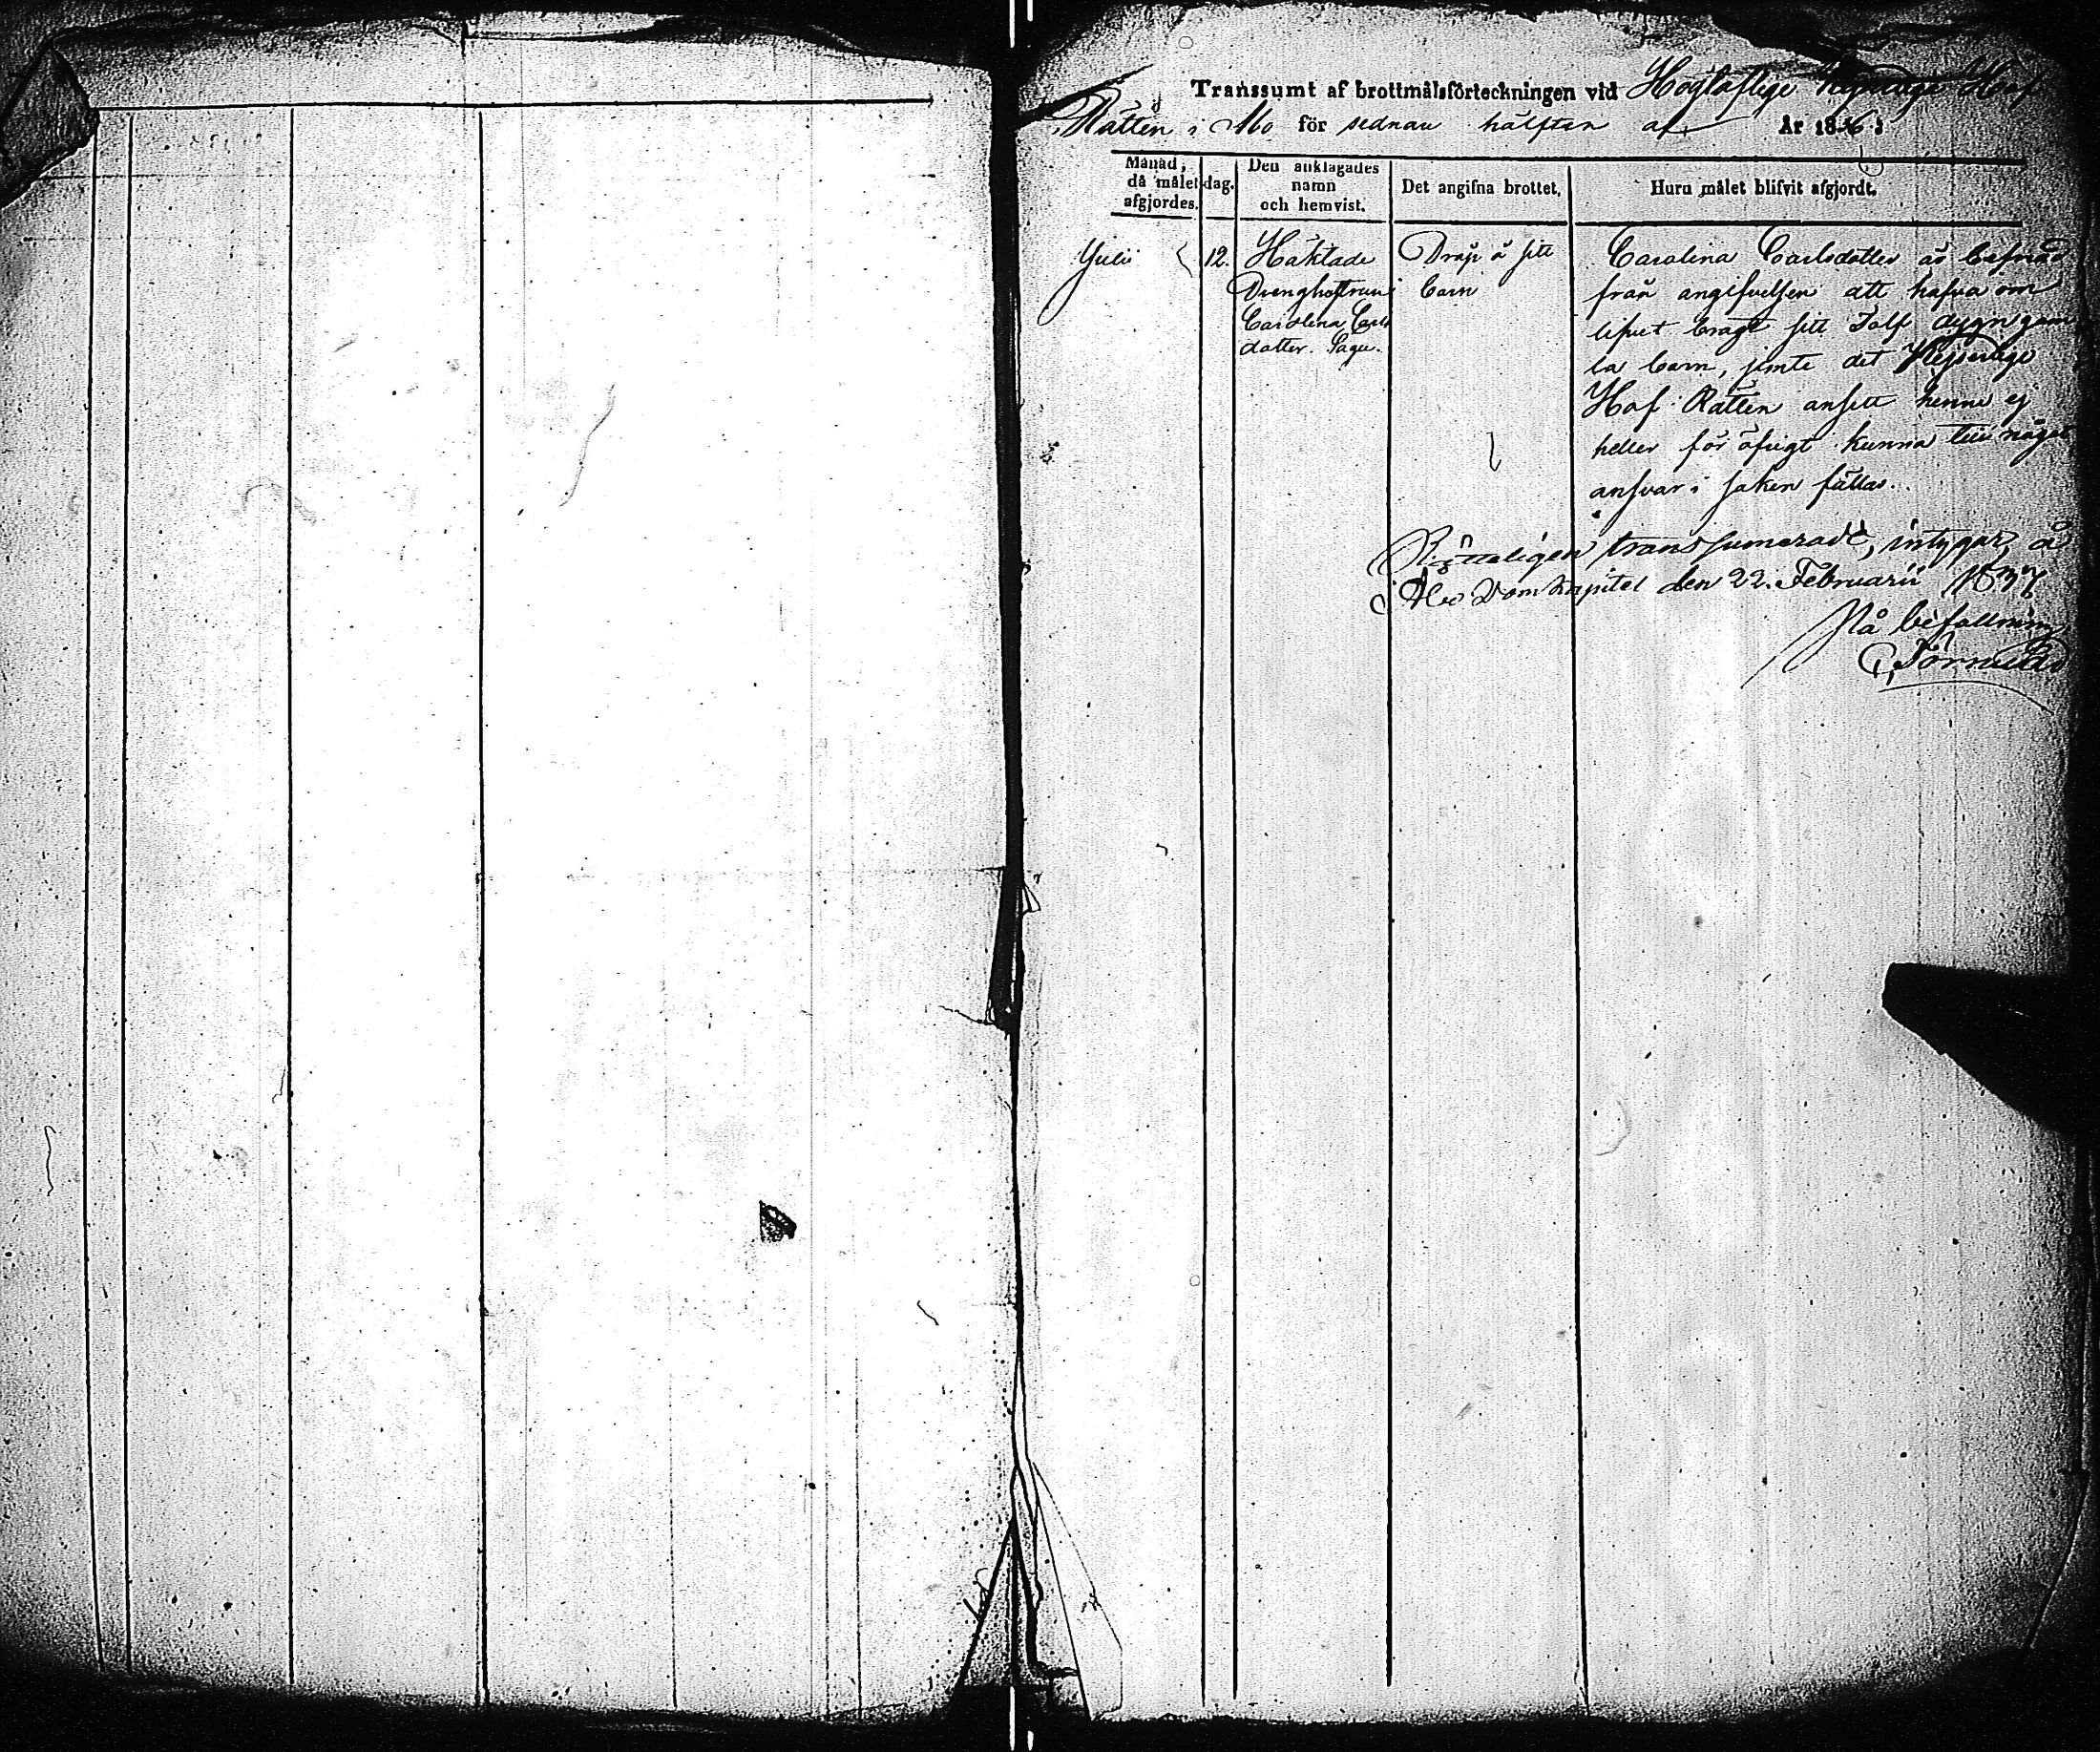 Transsumt af brottmålsförteckningen vid Högloflige Kejserliga Hof
Rätten i Åbo för sednare hälften af År 1856.
Månad,
då målet
afgjordes.
dag.
Den anklagades
namn
och hemvist.
Det angifna brottet.
Huru målet blifvit afgjordt.
Julii
12.
Häktade
Drenghustrun
Carolina Carls
dotter. Sagu.
Dråp å sitt
barn
Carolina Carlsdotter är befriad
från angifvelsen att hafva om
lifvet bragt sitt Tolf dygn gam
la barn, jemte det Kejserlige
Hof Rätten ansett henne ej
heller för öfrigt kunna till något
ansvar i saken fällas.
Rigtteligen transsumeradt, intygar, å
Åbo Domkapitel den 22. Februarii 1857
På befallning